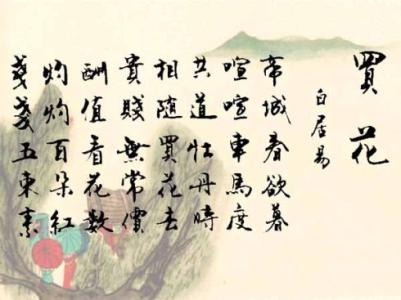 買花
白居易
帝城春欲暮
喧喧車馬度
共道牡丹時
相隨買花去
貴賤無常價
酬值看花数
灼灼百朵紅
戔戔五束素